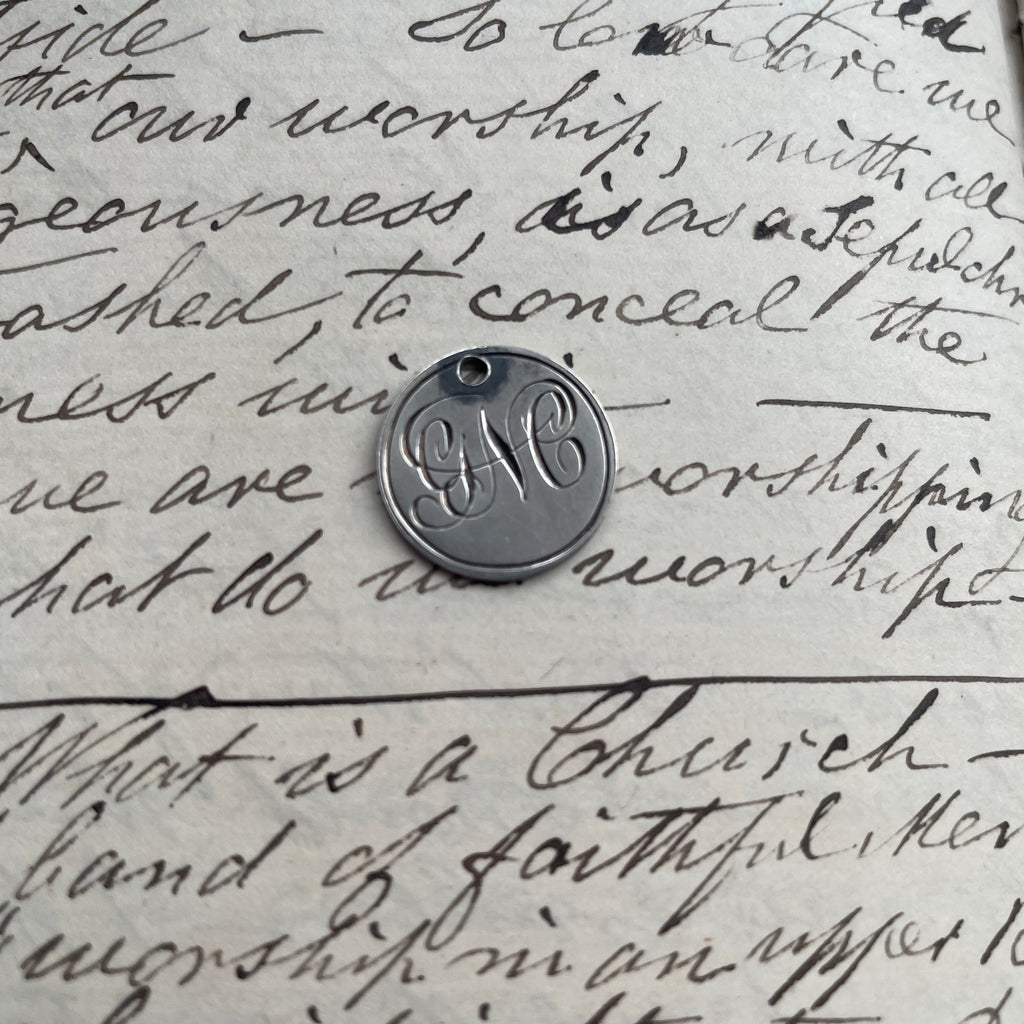 side — So
dare we
that
our worship, with all
geousness, is as a Sepulchr
ashed, to conceal the
ness
GNC
we are worshipping
hat do worship
What is a Church —
band of faithful Men
worship in an upper